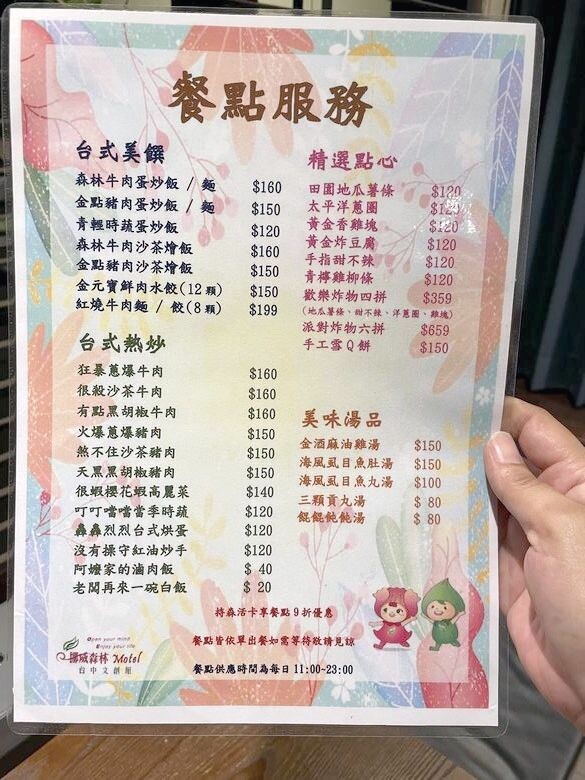 餐點服務
台式美饌
森林牛肉蛋炒飯 / 麵 $160
金點豬肉蛋炒飯 / 麵 $150
青輕時蔬蛋炒飯 $120
森林牛肉沙茶燴飯 $160
金點豬肉沙茶燴飯 $150
金元寶鮮肉水餃(12顆) $150
紅燒牛肉麵 / 餃(8顆) $199
台式熱炒
狂暴蔥爆牛肉 $160
很殺沙茶牛肉 $160
有點黑胡椒牛肉 $160
火爆蔥爆豬肉 $150
熬不住沙茶豬肉 $150
天黑黑胡椒豬肉 $150
很蝦櫻花蝦高麗菜 $140
叮叮噹噹當季時蔬 $120
轟轟烈烈台式烘蛋 $120
沒有操守紅油炒手 $120
阿嬤家的滷肉飯 $ 40
老闆再來一碗白飯 $ 20
精選點心
田園地瓜薯條 $120
太平洋蔥圈 $120
黃金香雞塊 $120
黃金炸豆腐 $120
手指甜不辣 $120
青檸雞柳條 $120
歡樂炸物四拼 $359
(地瓜薯條、甜不辣、洋蔥圈、雞塊)
派對炸物六拼 $659
手工雪Q餅 $150
美味湯品
金酒麻油雞湯 $150
海風虱目魚肚湯 $150
海風虱目魚丸湯 $100
三顆貢丸湯 $ 80
餛餛飩飩湯 $ 80
持森活卡享餐點9折優惠
餐點皆依單出餐如需等待敬請見諒
餐點供應時間為每日11:00~23:00
Open your mind
Enjoy your life
挪威森林 Motel
台中文創館